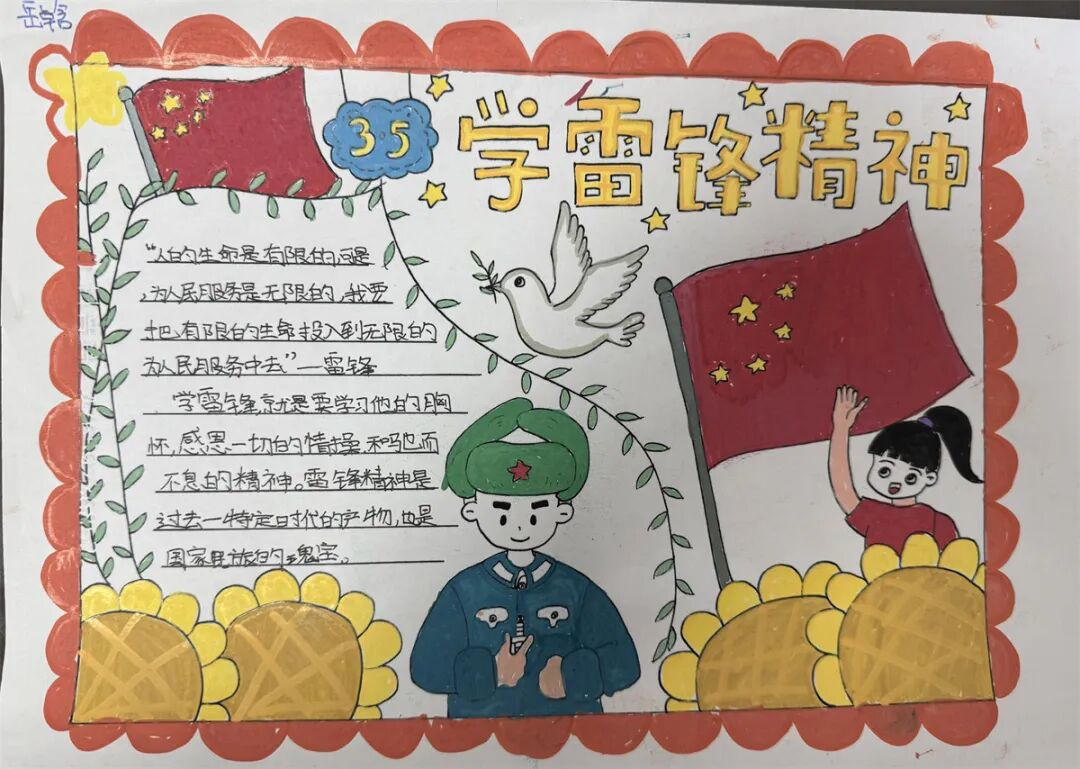 岳
3.5
学雷锋精神
“人的生命是有限的,可是
为人民服务是无限的,我要
把有限的生命投入到无限的
为人民服务中去”—雷锋
学雷锋,就是要学习他的胸
怀,感恩一切的情操,和驰而
不息的精神。雷锋精神是
过去一特定时代的产物,也是
国家民族的瑰宝。